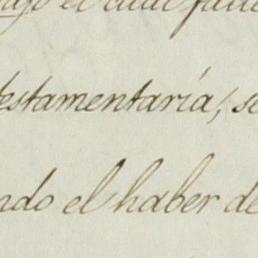 el cual
testamentaría, se
ndo el haber de